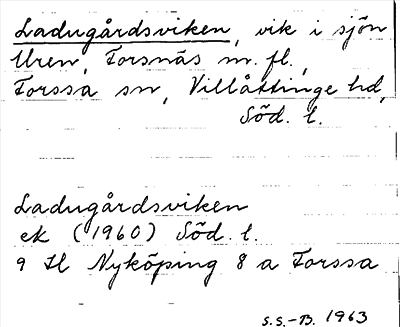 Ladugårdsviken, vik i sjön
Uren, Forsnäs m. fl.,
Forssa sn, Villåttinge hd,
Söd. l.
Ladugårdsviken
ek (1960) Söd. l.
9 H Nyköping 8 a Forssa
S.S.-B. 1963